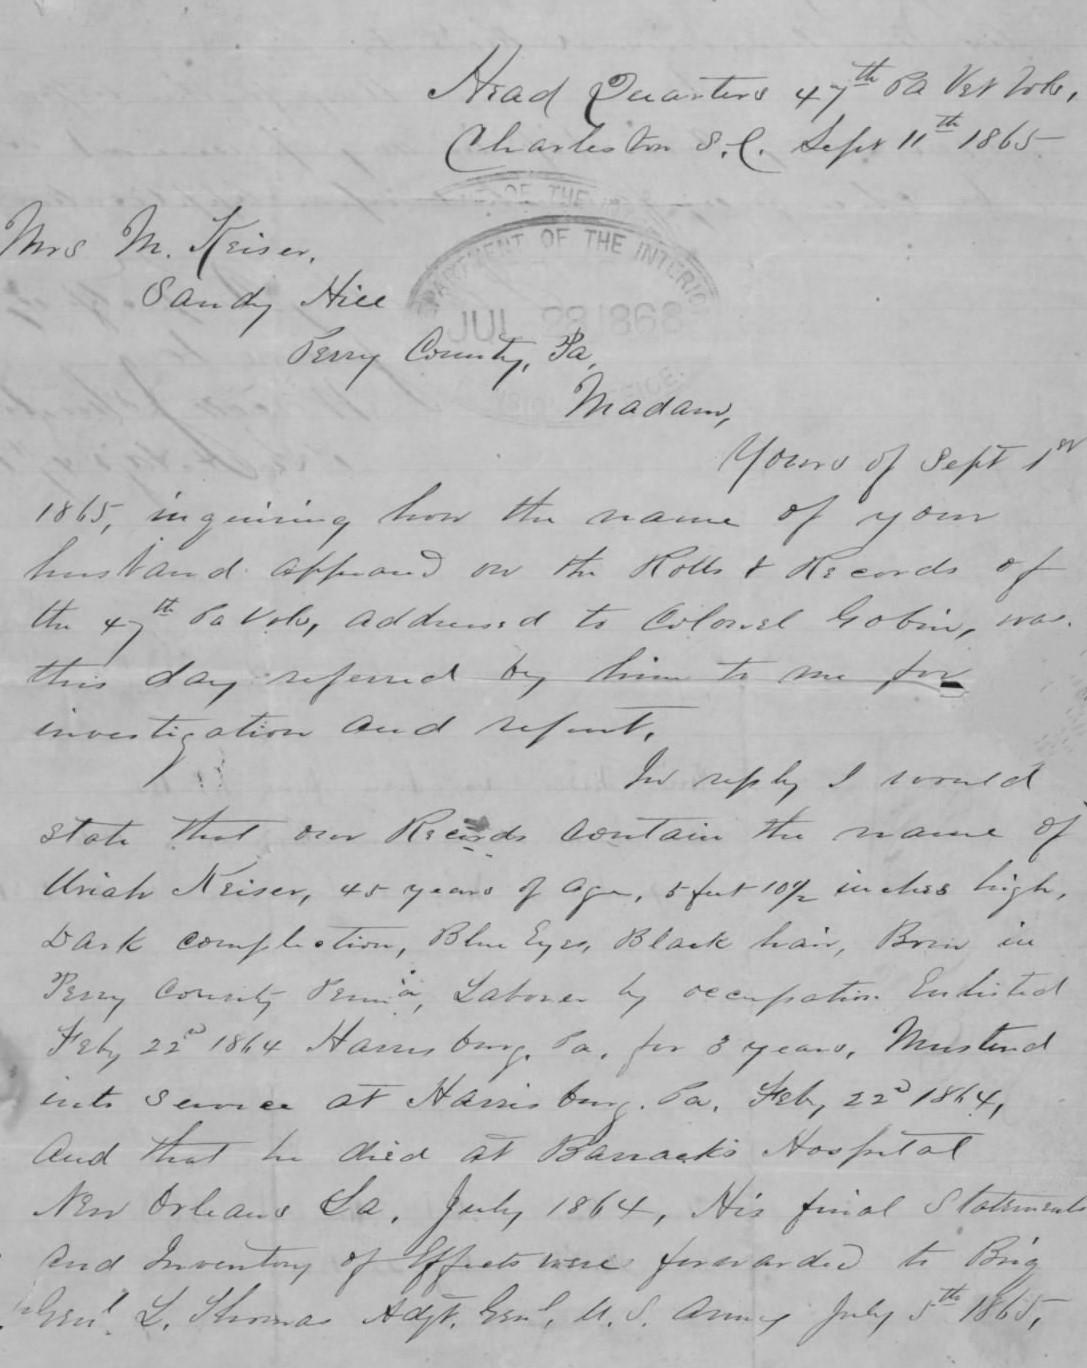 Head Quarters 47th Pa Vet Vols,
Charleston S.C. Sept 11th 1865
OF THE
DEPARTMENT OF THE INTERIOR
JUL 28 1868
Mrs M. Keiser,
Sandy Hill
Perry County, Pa,
Madam,
Yours of Sept 1st
1865, inquiring how the name of your
husband appeared on the Rolls & Records of
the 47th Pa Vols, addressed to Colonel Gobin, was
this day referred by him to me for
investigation and report.
In reply I would
state that our Records contain the name of
Uriah Keiser, 45 years of age, 5 feet 10½ inches high,
Dark complection, Blue Eyes, Black hair, Born in
Perry County Penn'a, Laborer by occupation. Enlisted
Feby 22d 1864 Harrisburg, Pa, for 3 years, Mustered
into Service at Harrisburg. Pa, Feby 22d 1864,
and that he died at Barracks Hospital
New Orleans La, July 1864, His final Statements
and Inventory of Effects were forwarded to Brig
Genl. L. Thomas Adjt. Genl, U.S. Army July 5th 1865,